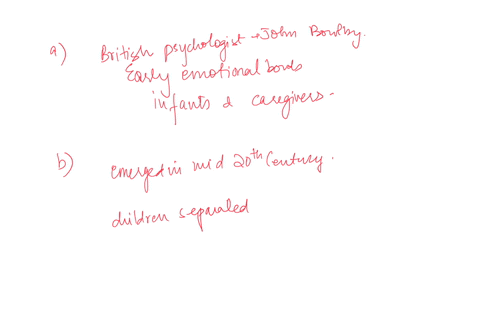 a) British psychologist → John Bowlby.
Early emotional bonds
infants & caregivers.
b) emerged in mid 20th Century.
children separated